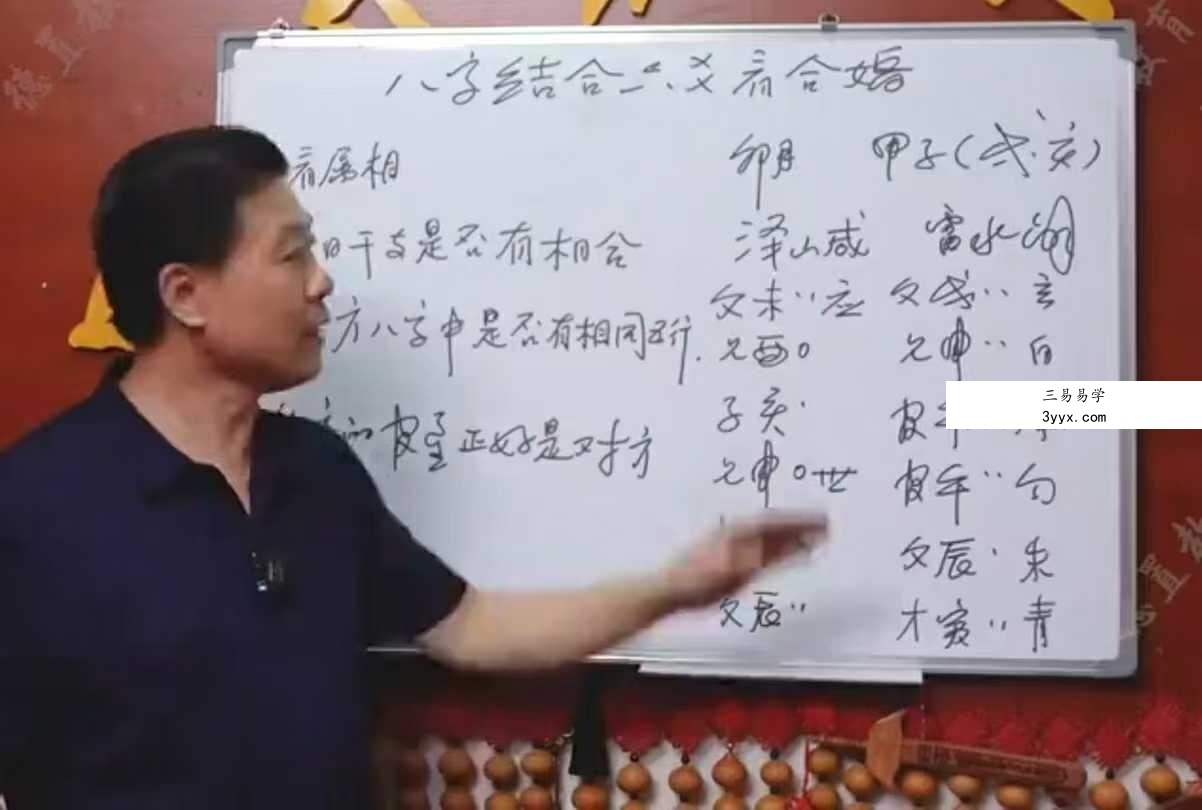 八字结合六爻看合婚
看属相
日干支是否有相合
方八字中是否有相同五行.
官星正好是对方
卯月 甲子(戌、亥)
泽山咸 雷水
父未‥应 父戌‥玄
兄酉o 兄申‥白
子亥·
兄申o世 官午‥勾
父辰· 朱
父辰‥ 才寅‥青
三易易学
3yyx.com
德 直 教 育